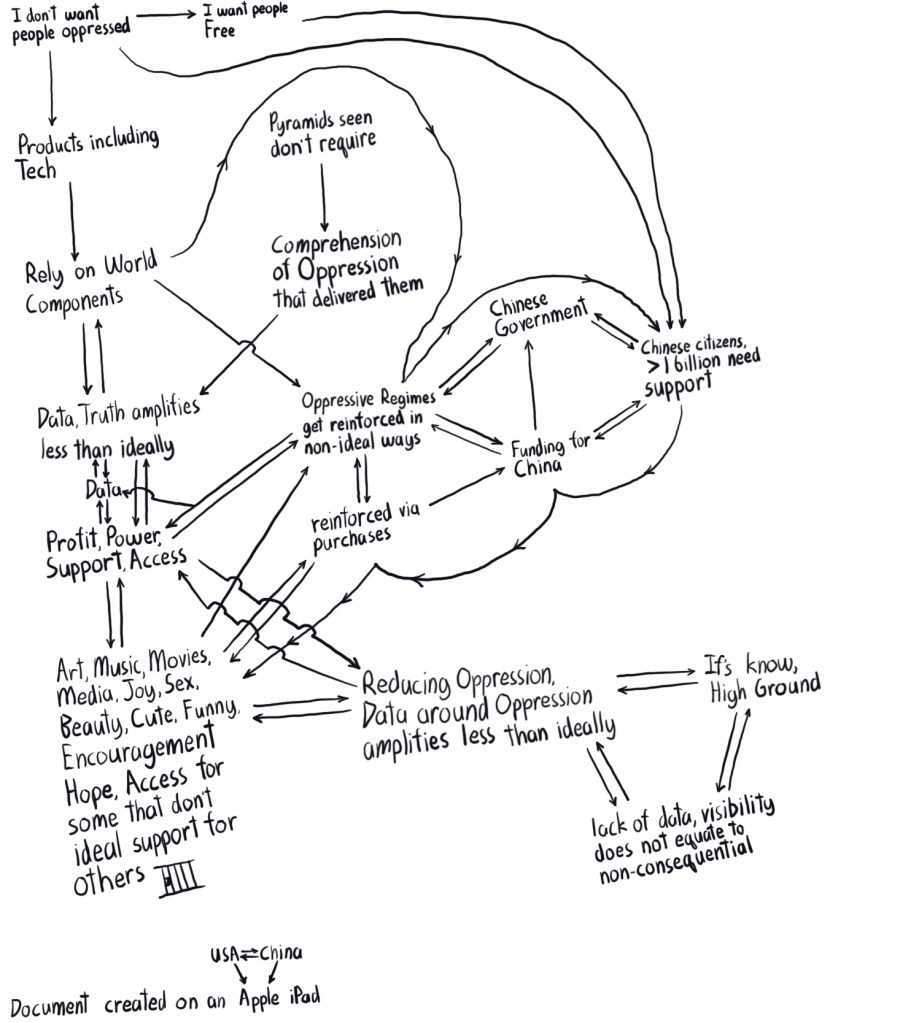 I don't want
people oppressed
I want people
Free
Products including
Tech
Pyramids seen
don't require
Rely on World
Components
Comprehension
of Oppression
that delivered them
Chinese
Government
Chinese citizens,
>1 billion need
support
Data, Truth amplifies
less than ideally
Oppressive Regimes
get reinforced in
non-ideal ways
Funding for
China
Data
reinforced via
purchases
Profit, Power,
Support, Access
Art, Music, Movies,
Media, Joy, Sex,
Beauty, Cute, Funny,
Encouragement
Hope, Access for
some that don't
ideal support for
others
Reducing Oppression,
Data around Oppression
amplities less than ideally
If's know,
High Ground
lack of data, visibility
does not equate to
non-consequential
USA⇄China
Document created on an Apple iPad